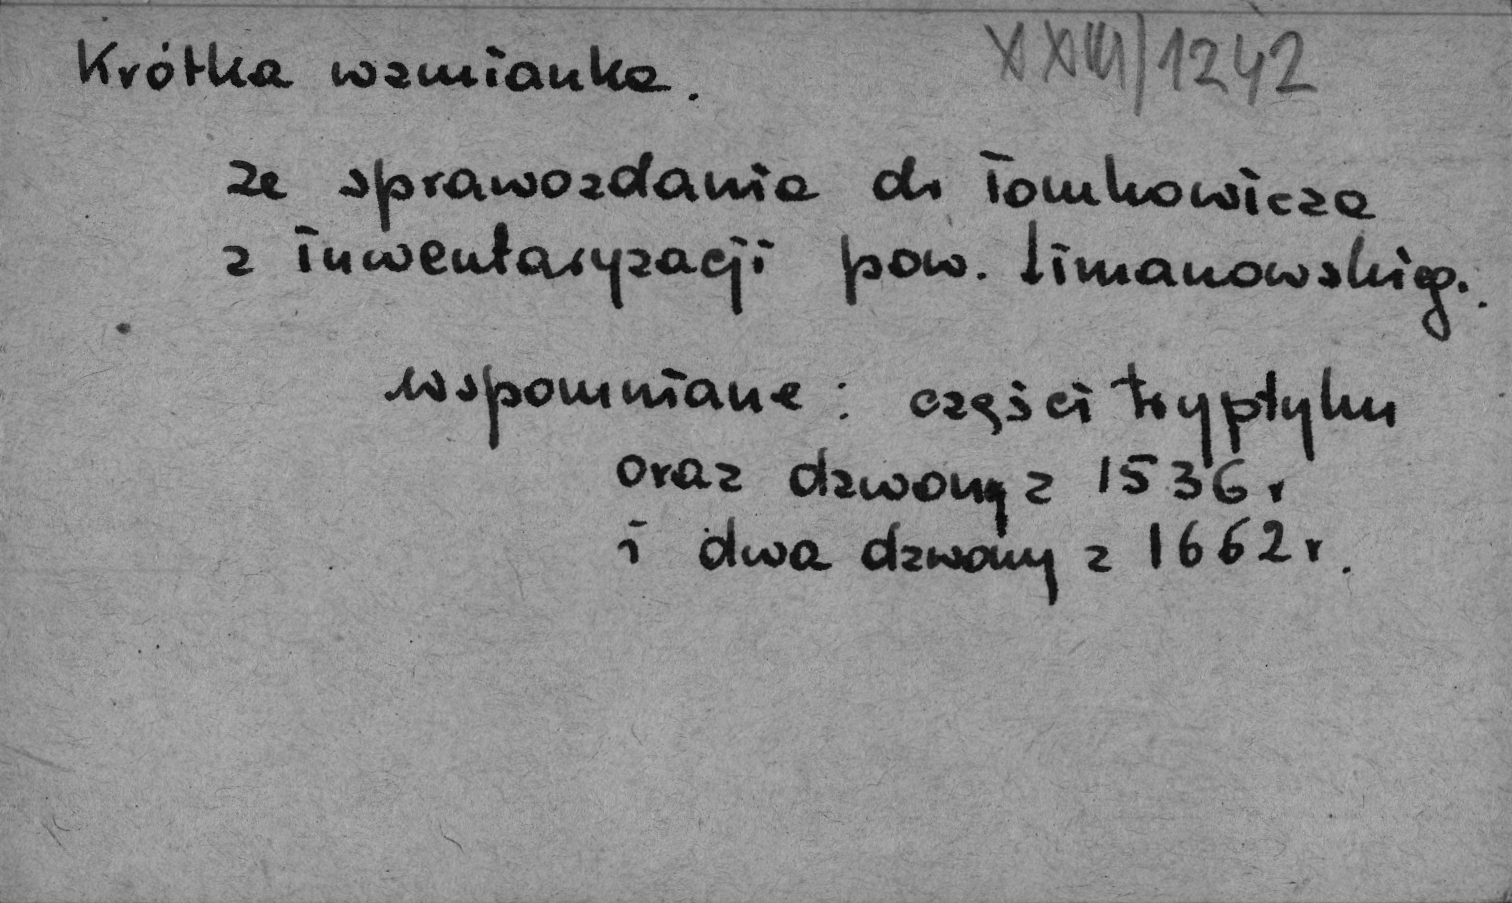 Krótka wzmianka. XXIII/1242
ze sprawozdania dr Tomkowicza
z inwentaryzacji pow. limanowskieg.
wspomniane: części tryptyku
oraz dzwony z 1536 r
i dwa dzwony z 1662 r.